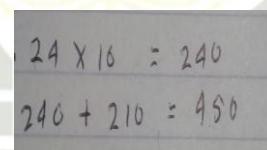 24 × 10 = 240
240 + 210 = 450